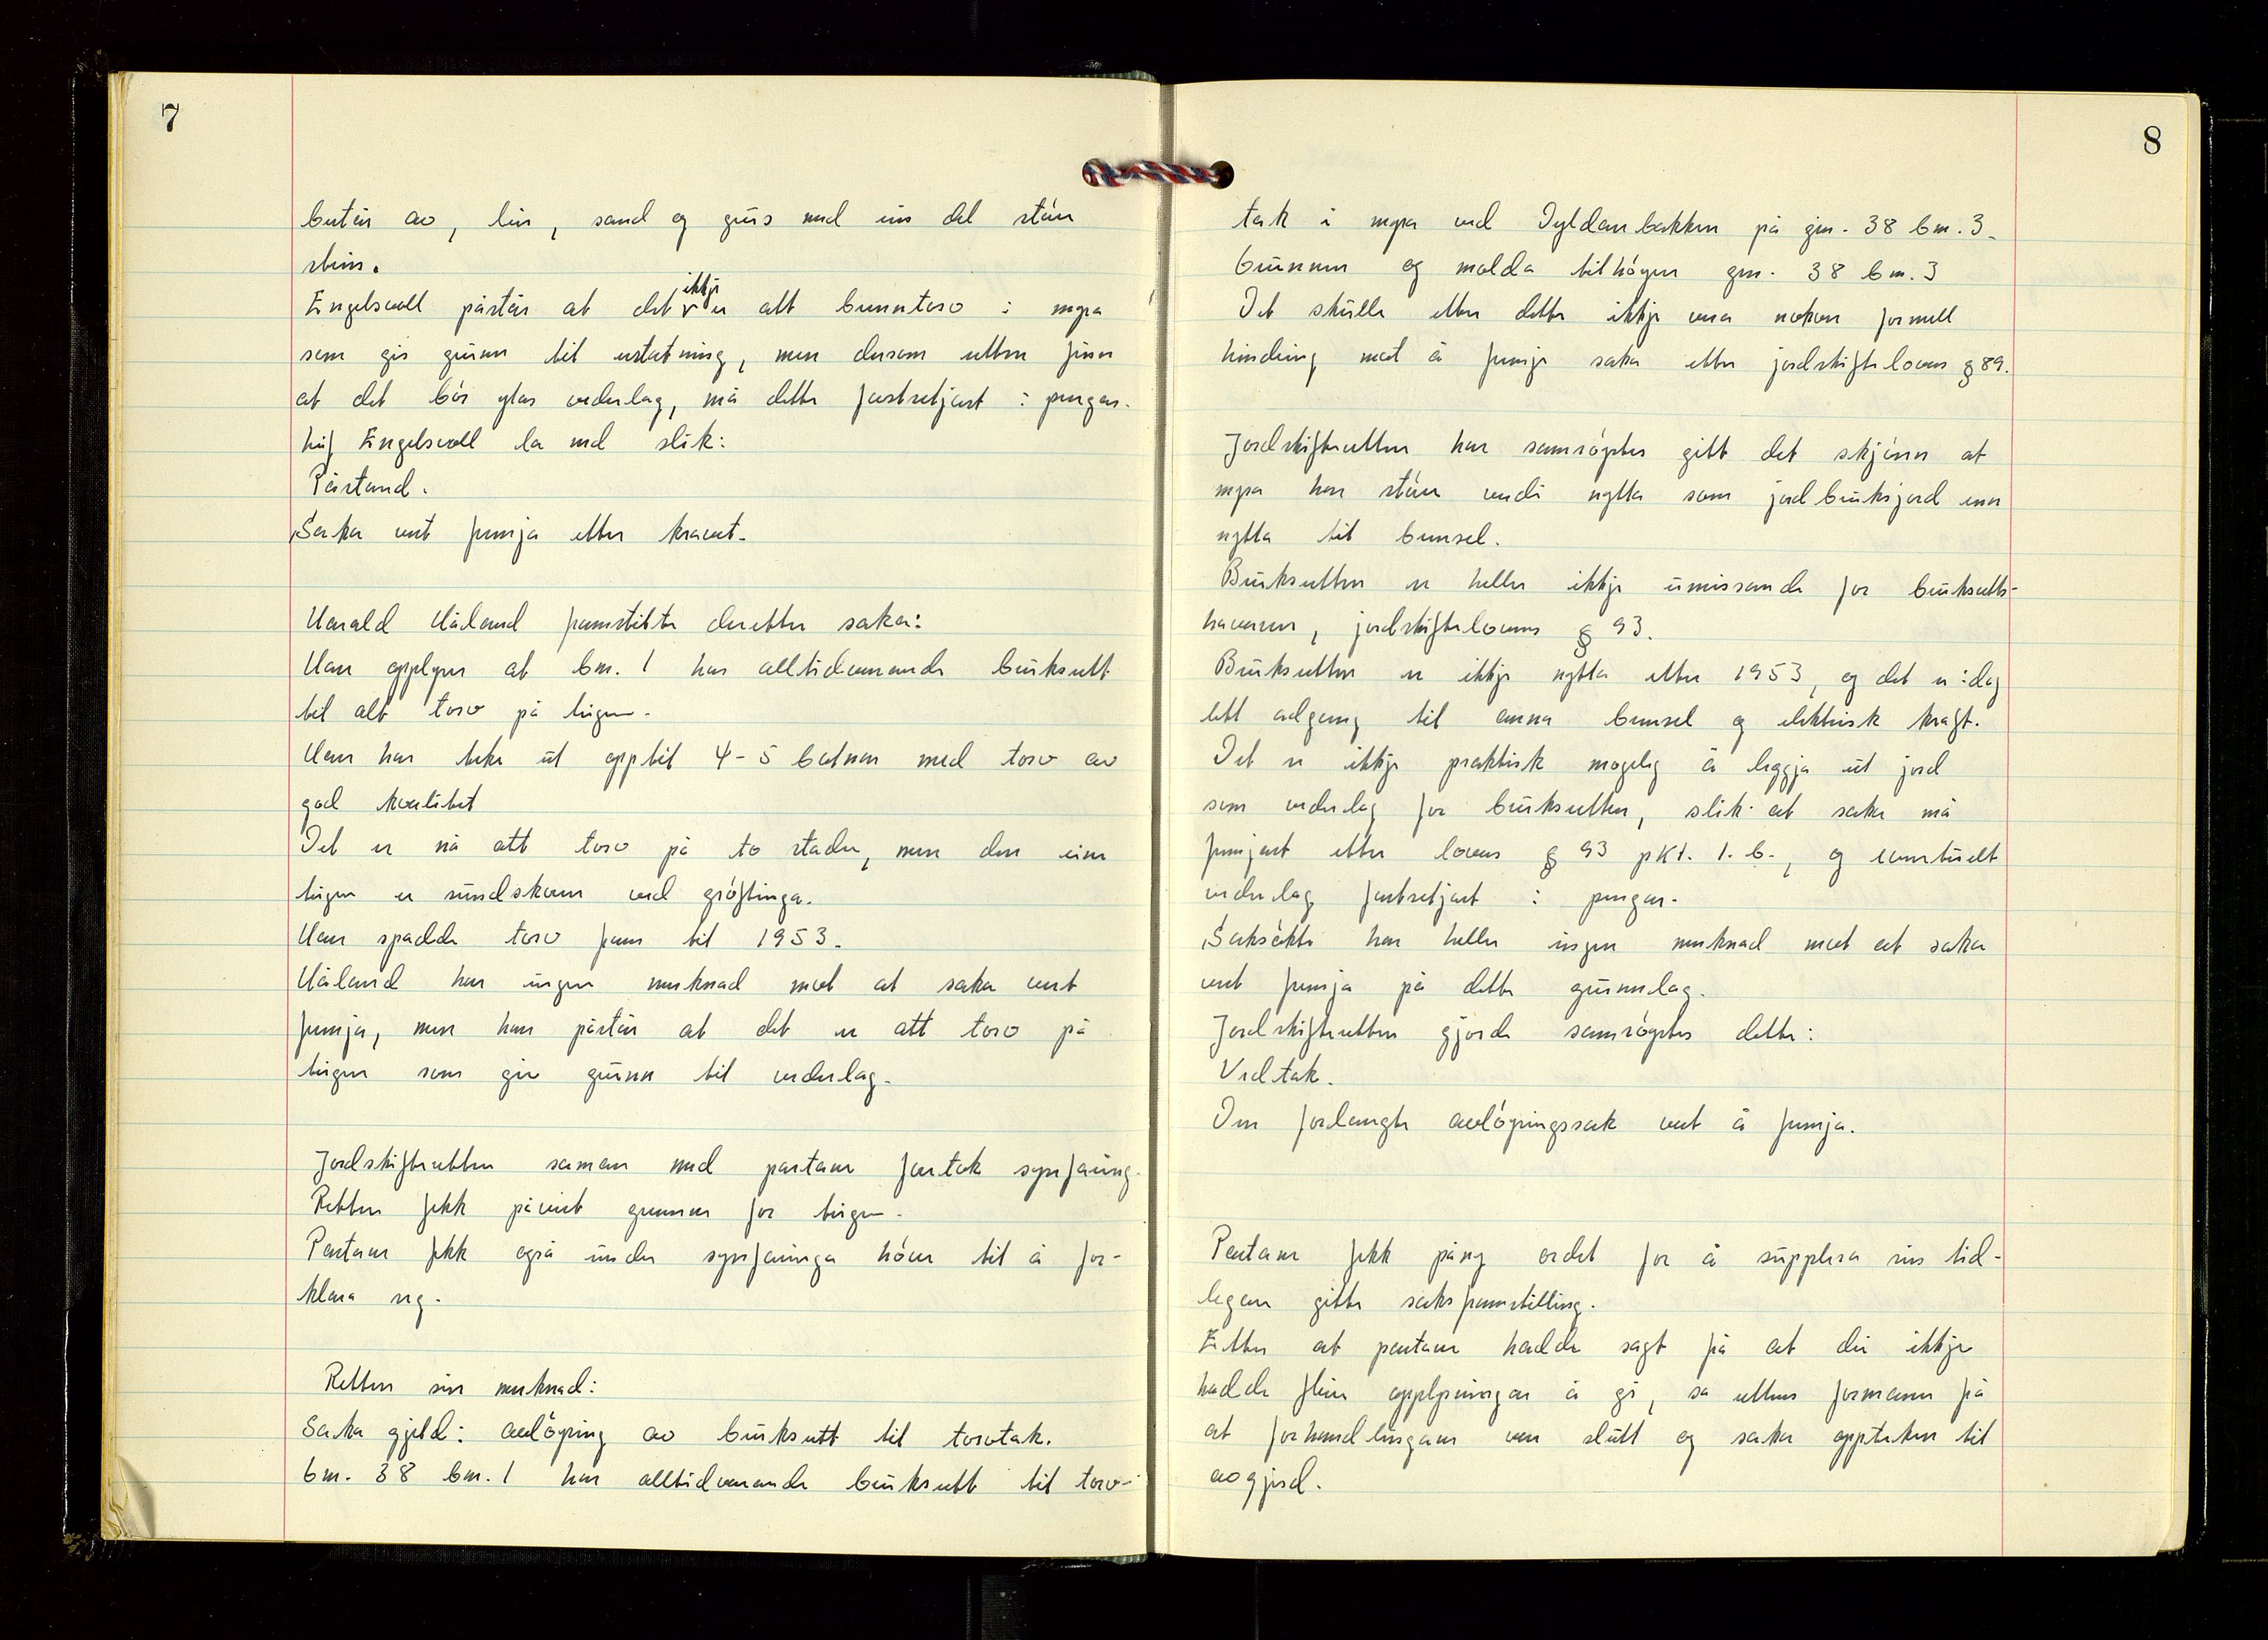 7
består av, leir, sand og grus med ein del større
stein.
Engelsvoll påstår at det ikkje er att brenntorv i myra
som gir grunn til erstatning, men dersom retten finn
at det bør ytas vederlag, må dette fastsetjast i pengar.
Leif Engelsvoll la ned slik:
Påstand.
Saka vert fremja etter kravet.
Harald Håland framstilte deretter saka:
Han opplyser at bnr. 1 har alltidvarande bruksrett
til alt torv på teigen.
Han har teke ut opptil 4-5 batnar med torv av
god kvalitet
Det er nå att torv på to stader, men den eine
teigen er sundskoren ved grøftinga.
Han spadde torv fram til 1953.
Håland har ingen merknad mot at saka vert
fremja, men han påstår at det er att torv på
teigen som gir grunn til vederlag.
Jordskifteretten saman med partane foretok synfaring.
Retten fekk påvist grensene for teigen.
Partane fekk også under synfaringa høve til å for-
klara seg.
Retten sin merknad:
Saka gjeld: avløysing av bruksrett til torvtak.
bnr. 38 bnr. 1 har alltidvarande bruksrett til torv-
8
tak i myra ved Dyldanbakken på gnr. 38 bnr. 3.
Grunnen og molda tilhøyrer gnr. 38 bnr. 3
Det skulle etter dette ikkje vera nokon formell
hindring mot å fremje saka etter jordskiftelovens § 89.
Jordskifteretten har samrøystes gitt det skjønn at
myra har større verdi nytta som jordbruksjord enn
nytta til brensel.
Bruksretten er heller ikkje umissande for bruksretts-
haveren, jordskiftelovens § 93.
Bruksretten er ikkje nytta etter 1953, og det er idag
lett adgang til anna brensel og elektrisk kraft.
Det er ikkje praktisk mogeleg å leggja ut jord
som vederlag for bruksretten, slik at saka må
fremjast etter lovens § 93 pkt. 1. b., og eventuelt
vederlag fastsetjast i pengar.
Saksøkte har heller ingen merknad mot at saka
vert fremja på dette grunnlag.
Jordskifteretten gjorde samrøystes dette:
Vedtak.
Den forlangte avløysingssak vert å fremja.
Partane fekk påny ordet for å supplera sin tid-
legare gitte saksframstilling.
Etter at partane hadde sagt frå at dei ikkje
hadde fleire opplysningar å gi, sa rettens formann frå
at forhandlingane var slutt og saka oppteken til
avgjerd.